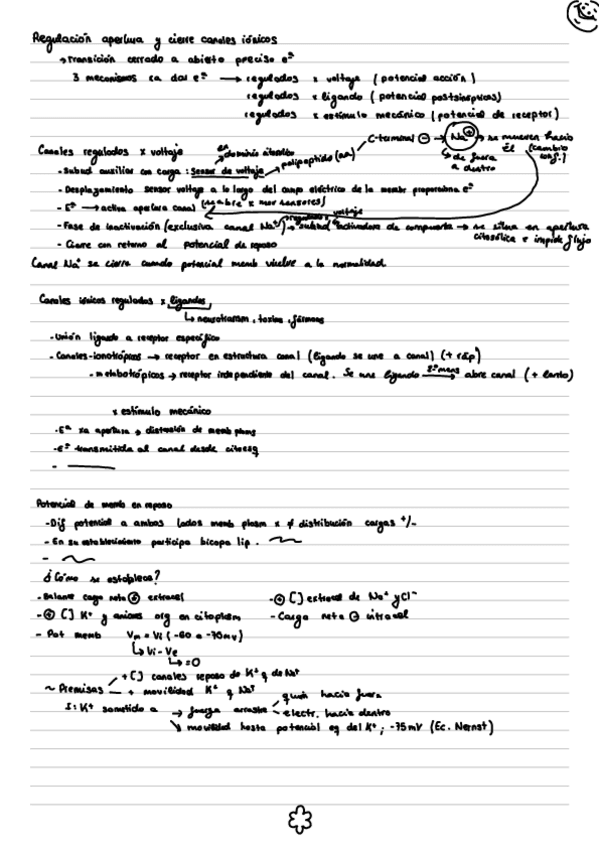 Regulación apertura y cierre canales iónicos
→ Transición cerrado a abierto preciso eª
3 mecanismos xa dar eª → regulados x voltaje (potencial acción)
regulados x ligando (potencial postsinápticos)
regulados x estímulo mecánico (potencial de receptor)
C-terminal ⊖ → Na⁺ → se mueven hacia él (cambio conf.)
↳ de fuera a dentro
Canales regulados x voltaje
en dominio citosólico
- Subud auxiliar con carga: Sensor de voltaje → polipeptido (aa)
- Desplazamiento sensor voltaje a lo largo del campo eléctrico de la membr proporciona eª
- Eª → activa apertura canal (se abre x mov sensores)
- Fase de inactivación (exclusiva canal Na⁺) → subud inactivadora de compuerta → se situa en apertura citosólica e impide flujo
- Cierre con retorno al potencial de reposo
Canal Na⁺ se cierra cuando potencial memb vuelve a la normalidad.
Canales iónicos regulados x ligandos
↳ neurotransm, toxina, fármaco
- Unión ligando a receptor específico
- Canales-ionotrópicos → receptor en estructura canal (ligando se une a canal) (+ ráp)
- metabotrópicos → receptor independiente del canal. Se une ligando 2º mens → abre canal (+ lento)
x estímulo mecánico
- Eª xa apertura → distensión de memb plasm
- eª transmitida al canal desde citoesq
-
Potencial de memb en reposo
- Dif potencial a ambos lados memb plasm x ≠ distribución cargas +/-
- En su establecimiento participa bicapa lip.
-
¿Cómo se establece?
- Balance carga neta ⊕ extracel
- ⊕ [] extracel de Na⁺ y Cl⁻
- ⊕ [] K⁺ y aniones org en citoplasm
- Carga neta ⊖ intracel
- Pot memb Vm = Vi (-60 a -70mv)
↳ Vi - Ve
↳ =0
~ Premisas + [] canales reposo de K⁺ q de Na⁺
+ movilidad K⁺ q Na⁺
Si K⁺ sometido a → fuerza arrastre quím hacia fuera
electr. hacia dentro
↘ movilidad hasta potencial eq del K⁺; -75mV (Ec. Nernst)